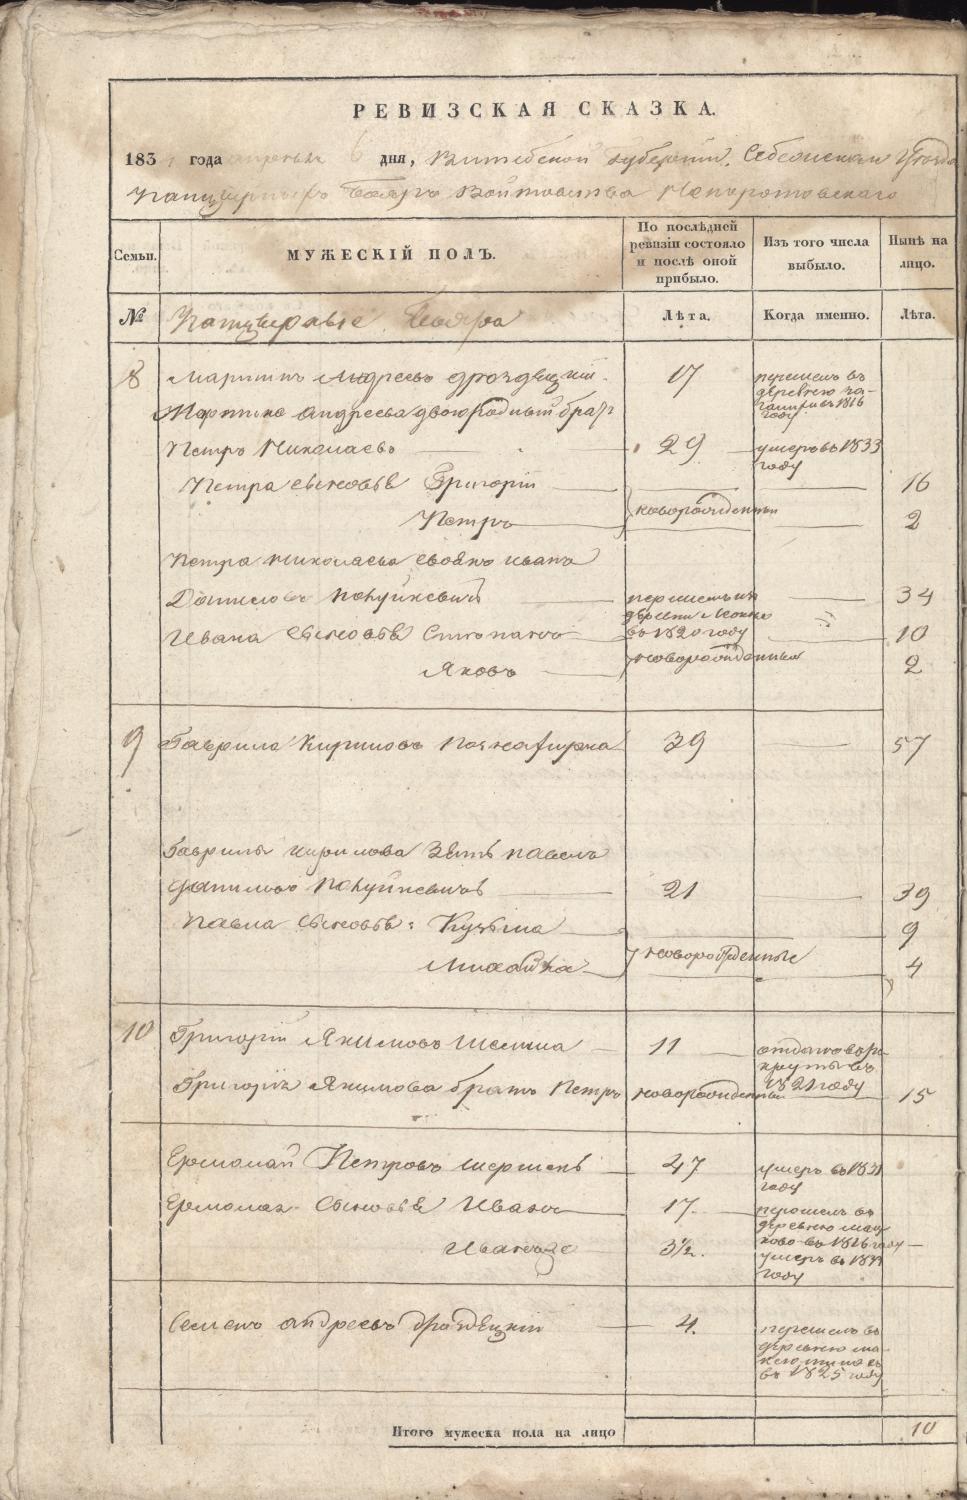 РЕВИЗСКАЯ СКАЗКА.
183 года апреля 6 дня, Витебской губернии, Себежскаго Уезда
Панцерныхъ Бояръ Войтовства Непоротовскаго
Семьи. МУЖЕСКІЙ ПОЛЪ. По послѣдней ревизіи состояло и послѣ оной прибыло. Изъ того числа выбыло. Нынѣ на лицо.
№ Панцерные Бояра Лѣта. Когда именно. Лѣта.
8 Мартинъ Андреевъ Дроздецкій 17 перешелъ въ деревню въ 1816 году
Мартина Андреева двоюродный братъ
Петръ Николаевъ 29 умеръ въ 1833 году
Петра сыновья Григорій 16
Петръ новорожденныи 2
Петра Николаева своякъ Иванъ
Даниловъ 34
перешелъ изъ деревни въ 1820 году
Ивана сыновья Степанъ 10
Яковъ новорожденныи 2
9 Гаврила Кириловъ 39 57
Гаврилы Кирилова зять Павелъ
Даниловъ 21 39
Павла сыновья: Кузьма 9
Михайла новорожденные 4
10 Григорій Якимовъ 11 отданъ въ рекруты въ 1821 году
Григорія Якимова братъ Петръ новорожденныи 15
Ермолай Петровъ 47 умеръ въ 1831 году
Ермолая сыновья Иванъ 17 перешелъ въ деревню въ 1816 году
Иванъ 2е 3½. умеръ въ 1833 году
Семенъ Андреевъ Дроздецкій 4. перешелъ въ деревню въ 1825 году
Итого мужеска пола на лицо 10